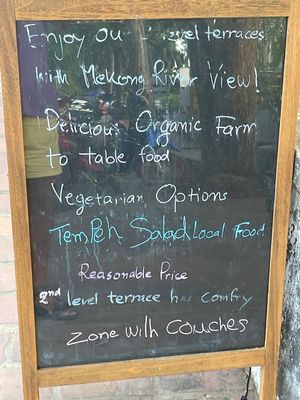 Enjoy level terraces
With Mekong River View!
Delicious Organic Farm
to table food
Vegetarian Options
Tempeh Salad Local Food
Reasonable Price
2nd level terrace has comfry
Zone with Couches